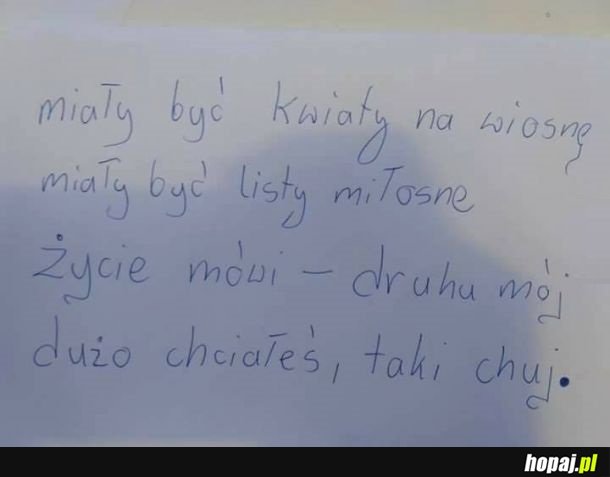 miały być kwiaty na wiosnę
miały być listy miłosne
życie mówi – druhu mój
dużo chciałeś, taki chuj.
hopaj.pl